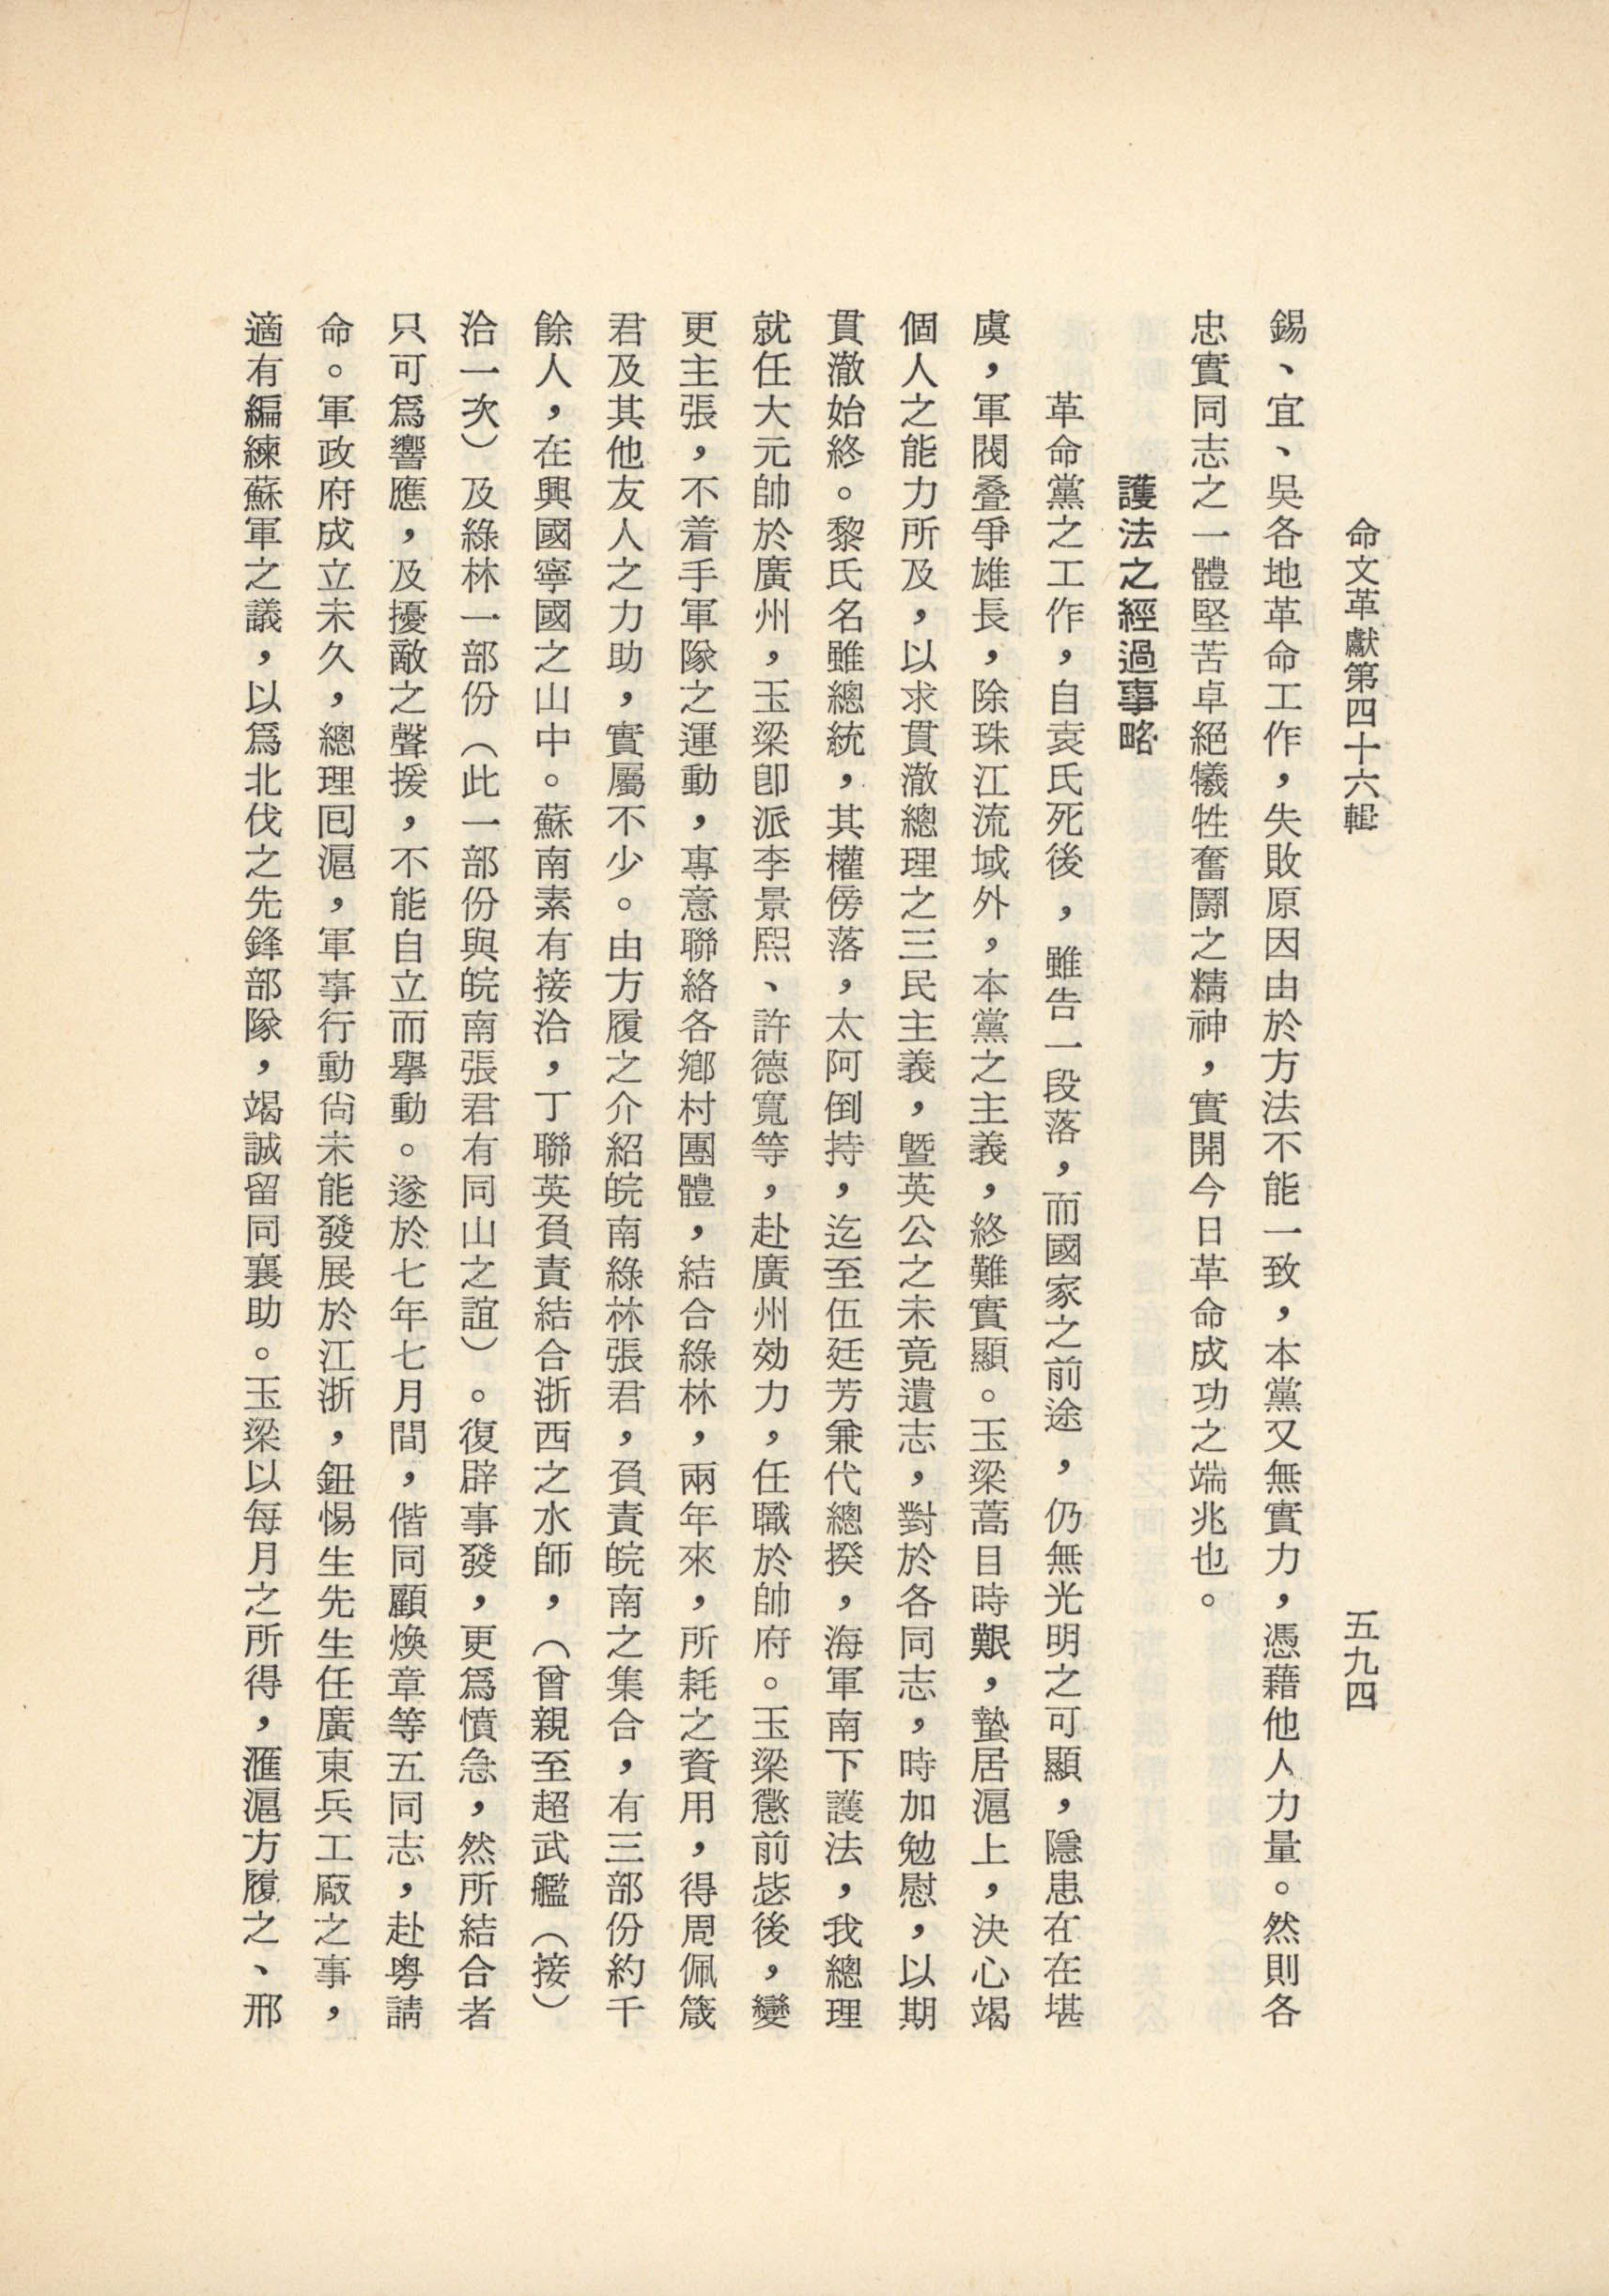 命文革獻第四十六輯
五九四
錫、宜、吳各地革命工作，失敗原因由於方法不能一致，本黨又無實力，憑藉他人力量。然則各
忠實同志之一體堅苦卓絕犧牲奮鬪之精神，實開今日革命成功之端兆也。
護法之經過事略
革命黨之工作，自袁氏死後，雖告一段落，而國家之前途，仍無光明之可顯，隱患在在堪
虞，軍閥叠爭雄長，除珠江流域外，本黨之主義，終難實顯。玉梁蒿目時艱，蟄居滬上，決心竭
個人之能力所及，以求貫澈總理之三民主義，暨英公之未竟遺志，對於各同志，時加勉慰，以期
貫澈始終。黎氏名雖總統，其權傍落，太阿倒持，迄至伍廷芳兼代總揆，海軍南下護法，我總理
就任大元帥於廣州，玉梁卽派李景熙、許德寬等，赴廣州効力，任職於帥府。玉梁懲前毖後，變
更主張，不着手軍隊之運動，專意聯絡各鄉村團體，結合綠林，兩年來，所耗之資用，得周佩箴
君及其他友人之力助，實屬不少。由方履之介紹皖南綠林張君，負責皖南之集合，有三部份約千
餘人，在興國寧國之山中。蘇南素有接洽，丁聯英負責結合浙西之水師，（曾親至超武艦（接）
洽一次）及綠林一部份（此一部份與皖南張君有同山之誼）。復辟事發，更爲憤急，然所結合者
只可爲響應，及擾敵之聲援，不能自立而擧動。遂於七年七月間，偕同顧煥章等五同志，赴粵請
命。軍政府成立未久，總理囘滬，軍事行動尙未能發展於江浙，鈕惕生先生任廣東兵工廠之事，
適有編練蘇軍之議，以爲北伐之先鋒部隊，竭誠留同襄助。玉梁以每月之所得，滙滬方履之、邢